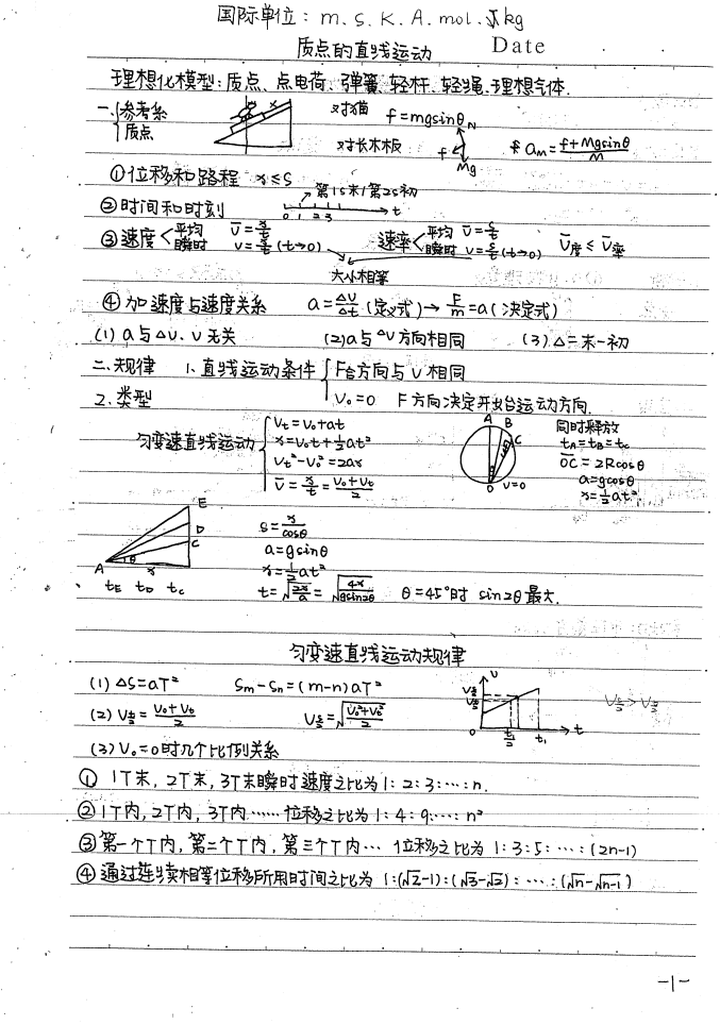 国际单位: m. s. K. A. mol. kg
质点的直线运动 Date
理想化模型:质点、点电荷、弹簧、轻杆、轻绳、理想气体.
一、{参考系 质点 x 对猫 f=mgsinθ N f Mg 对长木板 aM=(f+Mgsinθ)/M
①位移和路程 x≤s
②时间和时刻 0 1 2 3 t 第1s末/第2s初
③速度<平均 v̄=x/t 瞬时 v=x/t (t→0) 速率<平均 v̄=s/t 瞬时 v=s/t (t→0) v̄度≤v̄率
大小相等
④加速度与速度关系 a=Δv/Δt (定义式)→ F/m=a (决定式)
(1) a与Δv、v无关 (2) a与Δv方向相同 (3) Δ=末-初
二、规律 1.直线运动条件{F合方向与v相同
v₀=0 F方向决定开始运动方向.
2.类型
匀变速直线运动{Vt=V₀+at
x=V₀t+½at²
Vt²-V₀²=2ax
v̄=x/t=(V₀+Vt)/2
A B C D V=0
同时释放
tA=tB=tC
OC=2Rcosθ
a=gcosθ
x=½at²
A θ x C D E
tE tD tC
s=x/cosθ
a=gsinθ
x=½at²
t=√(2x/a)=√(4x/gsin2θ) θ=45°时 sin2θ最大.
匀变速直线运动规律
(1) ΔS=aT² Sm-Sn=(m-n)aT²
(2) V t/2=(V₀+Vt)/2 V s/2=√((V₀²+Vt²)/2) v V s/2 V t/2 0 t/2 t₁ t V s/2>V t/2
(3) V₀=0时几个比例关系
① 1T末, 2T末, 3T末瞬时速度之比为1:2:3:…:n.
② 1T内, 2T内, 3T内……位移之比为1:4:9:…:n²
③ 第一个T内, 第二个T内, 第三个T内… 位移之比为 1:3:5:…:(2n-1)
④ 通过连续相等位移所用时间之比为 1:(√2-1):(√3-√2):…:(√n-√n-1)
-1-